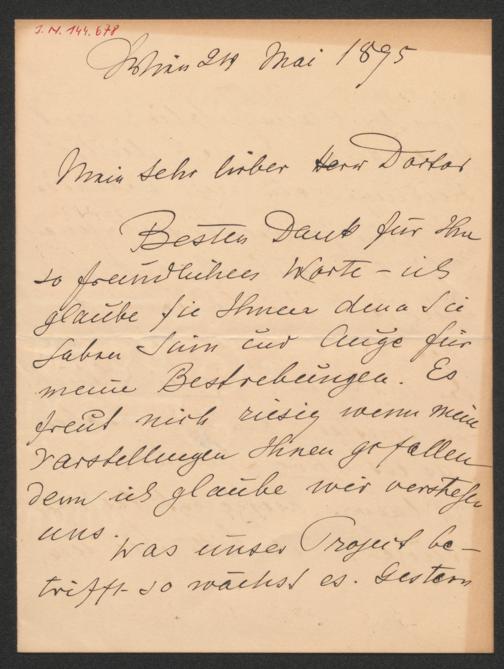 J. N. 144.678
Wien 24 Mai 1895
Mein sehr lieber Herr Doctor
Besten Dank für Ihre
so freundlichen Worte – ich
glaube sie Ihnen denn Sie
haben Sinn und Auge für
meine Bestrebungen. Es
freut mich riesig wenn meine
Darstellungen Ihnen gefallen
denn ich glaube wir verstehen
uns.
Was unser Project be-
trifft – so wächst es. Gestern